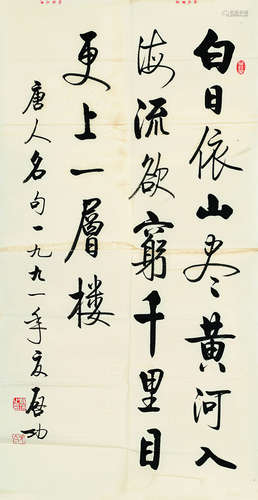 白日依山尽黄河入
海流欲窮千里目
更上一層楼
唐人名句一九九一年夏启功